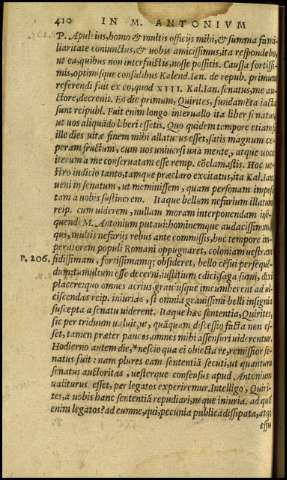 410 IN M. ANTONIVM
P. Apuleius, homo & multis officijs mihi, & summa fami-
liaritate coniunctus, & uobis amicissimus, ita responde bo,
ut ea, quibus non interfuistis, nosse possitis. Caussa fortissi-
mis, optimisque consulibus Kalend. Ian. de repub. primum
referendi fuit ex eo, quod XIII. Kal. Ian. senatus, me au-
ctore, decreuit. Eo die primum, Quirites, fundamēta iacta
sunt reipubl. Fuit enim longo interuallo ita liber senatus,
ut uos aliquādo liberi essetis. Quo quidem tempore etiamsi
ille dies uitæ finem mihi allaturus esset, satis magnum ce-
peram fructum, cum uos uniuersi una mente, atque uoce
iterum a me conseruatam esse remp. cōclamastis. Hoc ue-
stro iudicio tanto, tamque præclaro excitatus, ita Kal. Ian.
ueni in senatum, ut meminissem, quam personam imposi-
tam a uobis sustinerem. Itaque bellum nefarium illatum
reip. cum uiderem, nullam moram interponendam inse-
quendi M. Antonium putaui: hominemque audacissimum,
qui, multis nefarijs rebus ante commissis, hoc tempore im-
peratorem populi Romani oppugnaret, coloniam uestram
P. 206. fidissimam, fortissimamq; obsideret, bello cēsui persequē-
dum: tumultum esse decreui: iustitium edici, saga sumi, dixi
placere: quo omnes acrius, grauiusque incumberent ad ul-
ciscendas reip. iniurias, si omnia grauissimi belli insignia
suscepta a senatu uiderent. Itaque hæc sententia, Quirites,
sic per triduum ualuit, ut, quāquam discessio facta non es-
set, tamen præter paucos, omnes mihi assensuri uiderentur.
Hodierno autem die, * nescio qua ei obiecta re, remissior se-
natus fuit: nam plures eam sententiā secuti, ut quantum
senatus auctoritas, uesterque consensus apud Antonium
ualiturus esset, per legatos experiremur. Intelligo, Quiri-
tes, a uobis hanc sententiā repudiari, neque iniuria. ad quē
enim legatos? ad eumne, qui, pecunia publica dissipata, atq;
effu